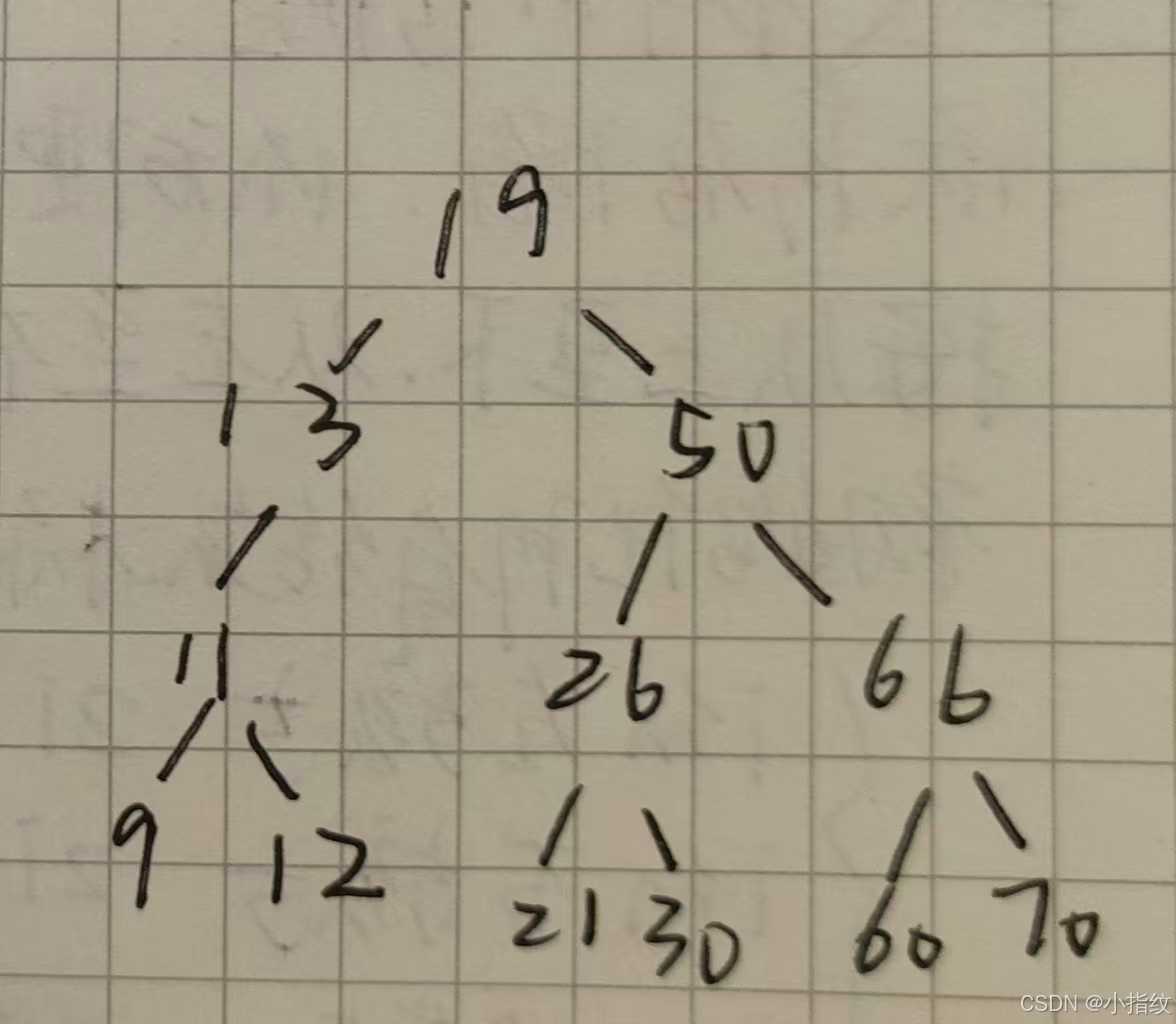 19
13 50
11 26 66
9 12 21 30 60 70
CSDN @小指纹